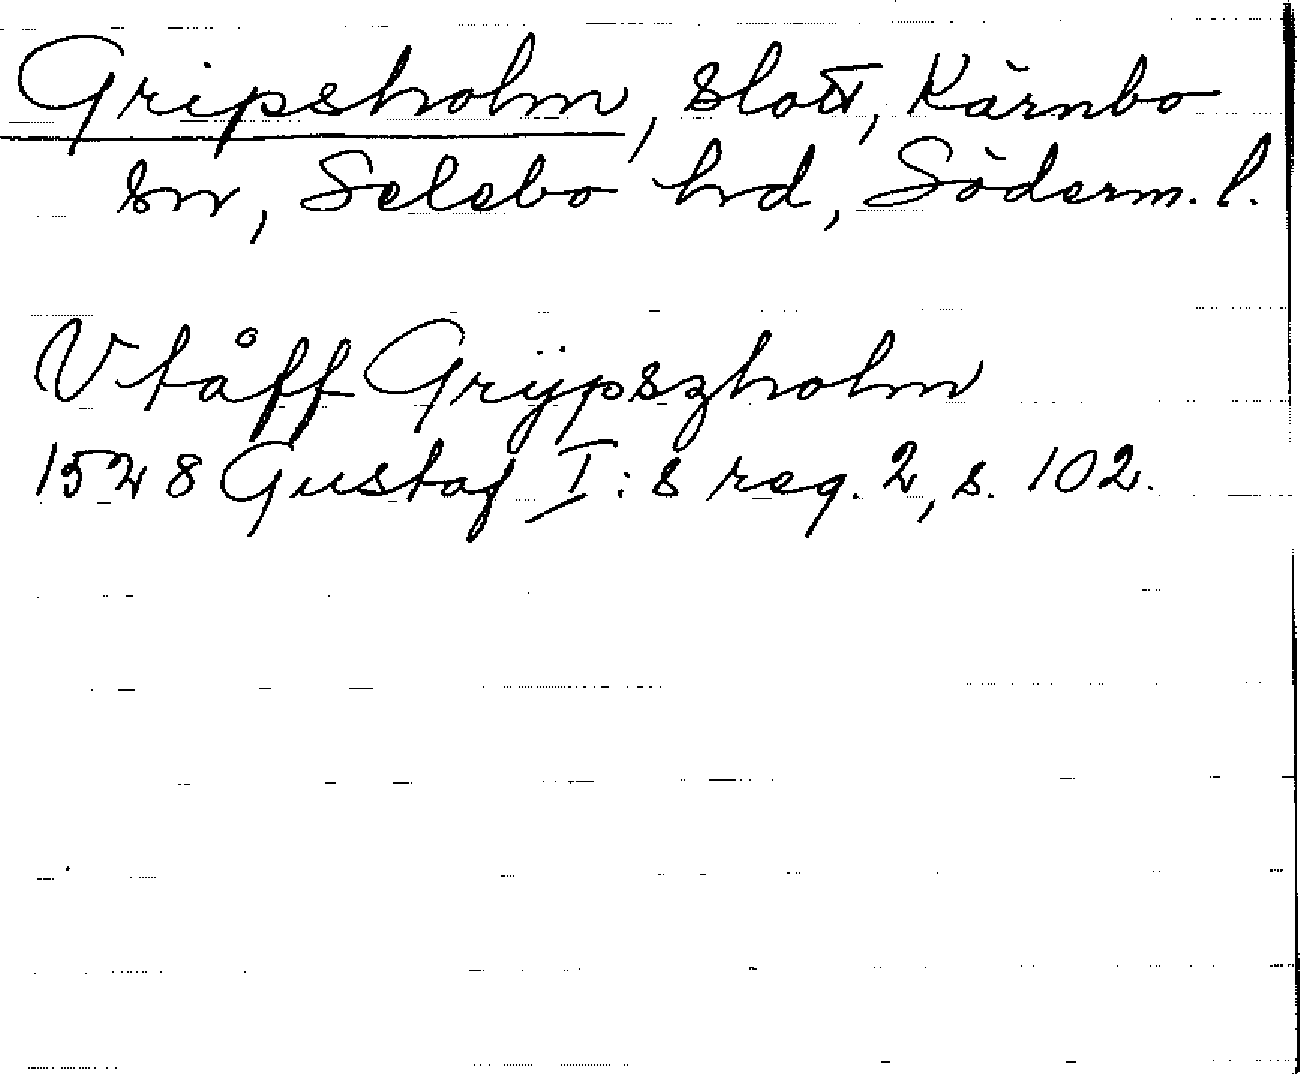 Gripsholm, slott, Kärnbo
sn, Selebo hrd, Söderm. l.
Vtåff Grÿpszholm
1528 Gustaf I:s reg. 2, s. 102.